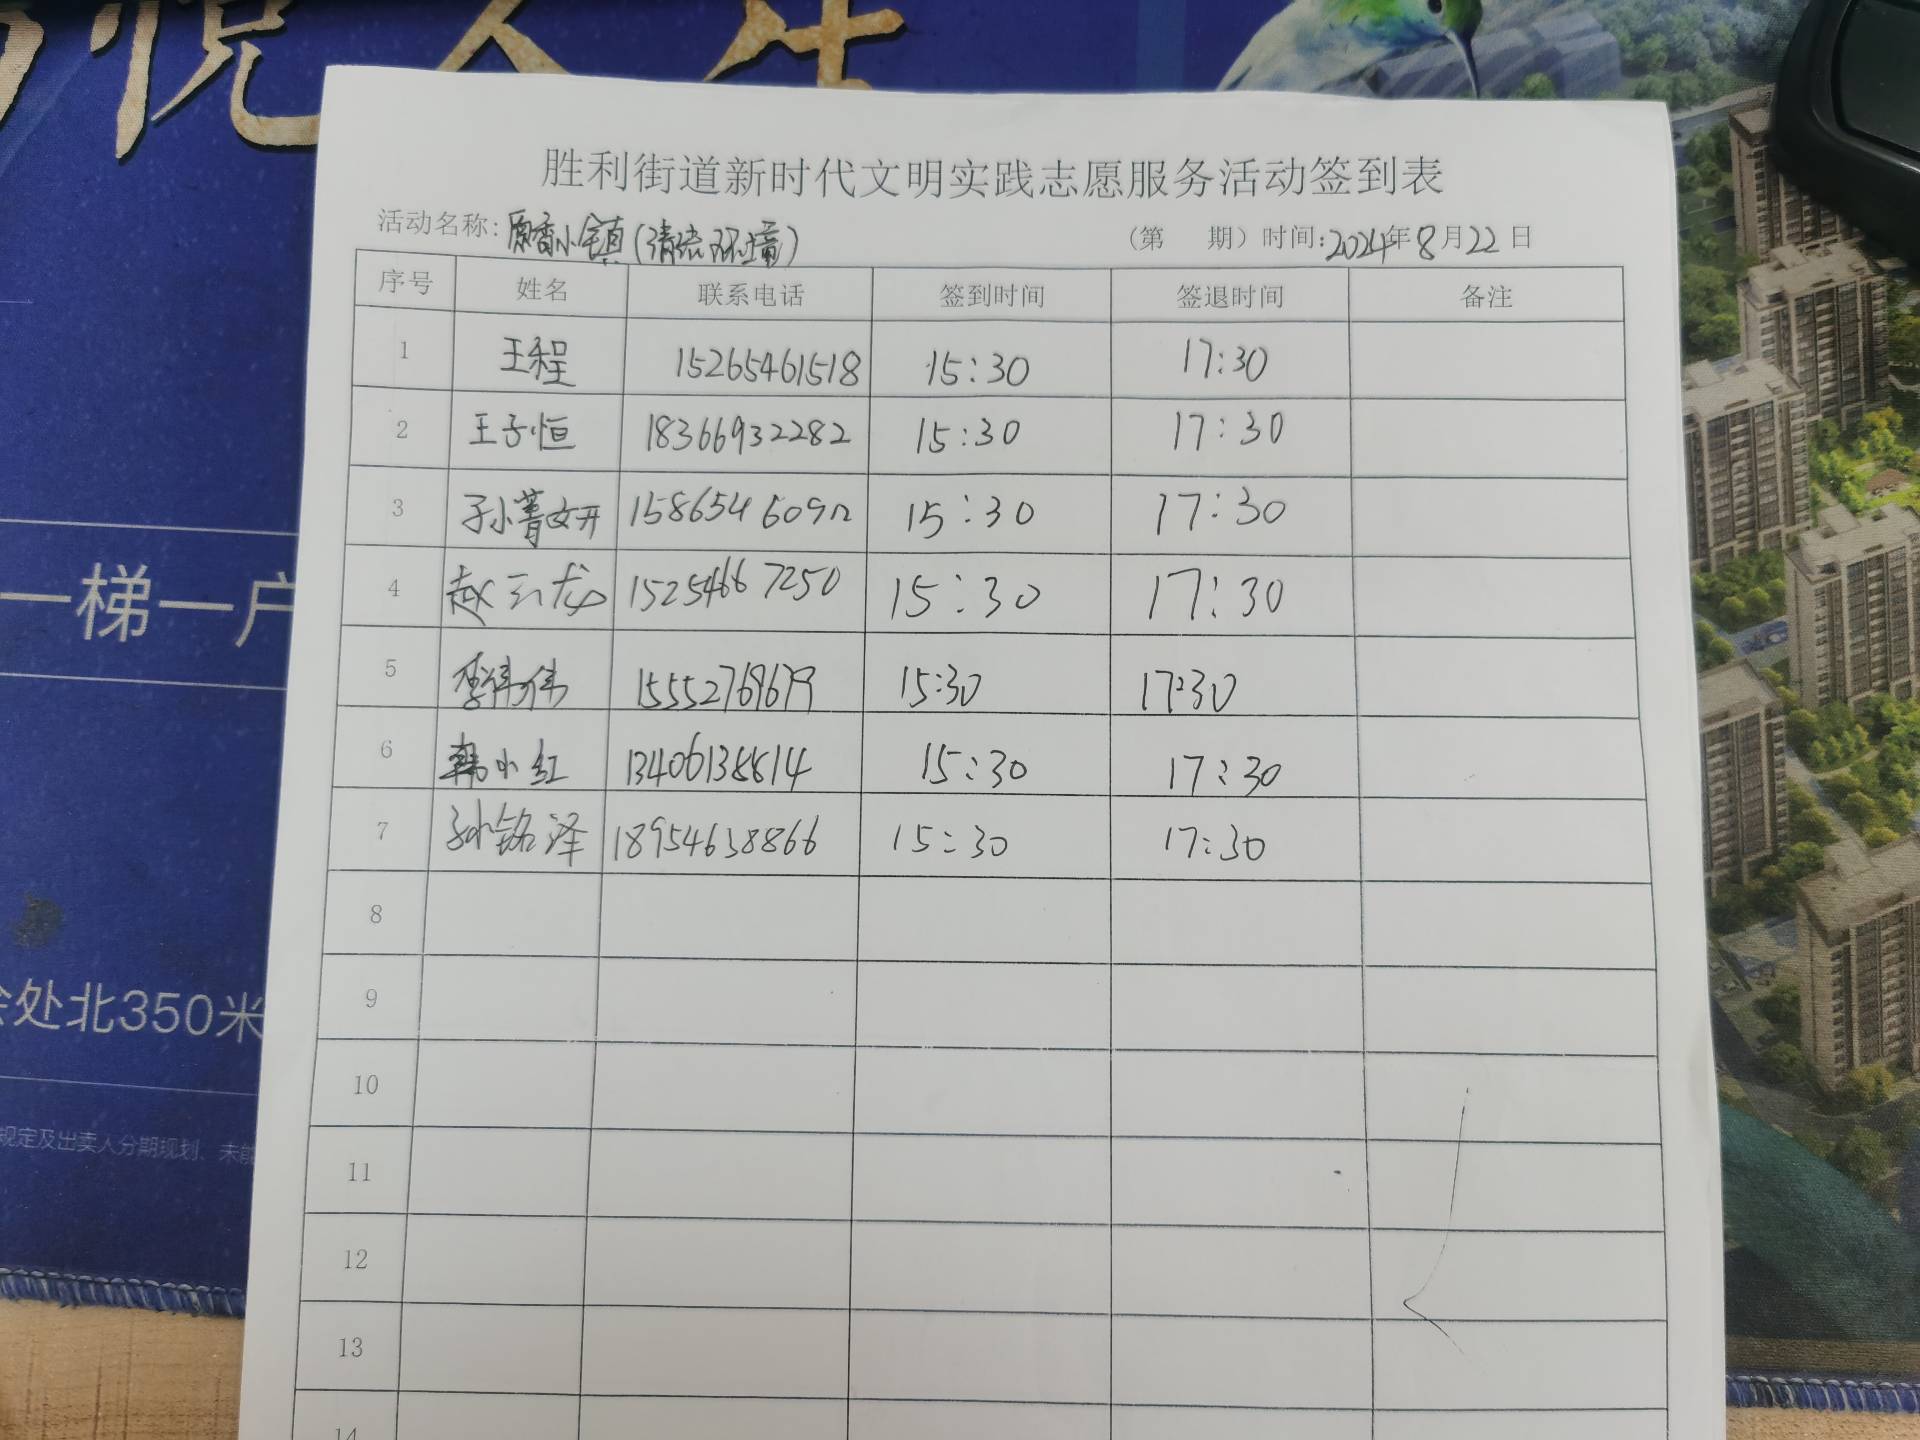 悦人生
胜利街道新时代文明实践志愿服务活动签到表
活动名称: 原香小镇(清洁环境) (第 期) 时间:2024年8月22日
序号 姓名 联系电话 签到时间 签退时间 备注
1 王程 15265461518 15:30 17:30
2 王子恒 18366932282 15:30 17:30
3 孙菁妍 15:30 17:30
4 赵云龙 15254667250 15:30 17:30
一梯一户
5 李伟伟 15552769679 15:30 17:30
6 韩小红 13406138814 15:30 17:30
7 孙铭泽 18954638866 15:30 17:30
8
9
处北350米
10
规定及出卖人分期规划、未能
11
12
13
14